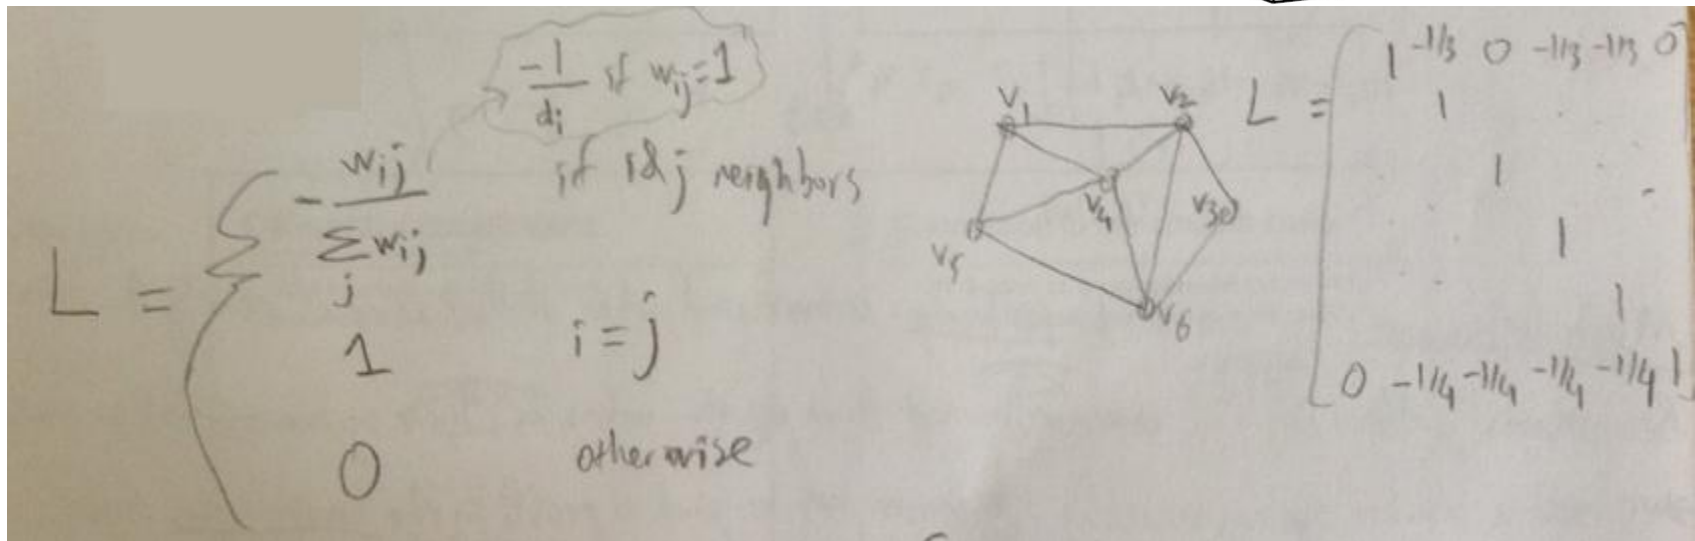 L =
-1/di if wij=1
- wij / ∑j wij if i&j neighbors
1 i=j
0 otherwise
V1
V2
V3
V4
V5
V6
L =
1 -1/3 0 -1/3 -1/3 0
1
1
1
1
0 -1/4 -1/4 -1/4 -1/4 1